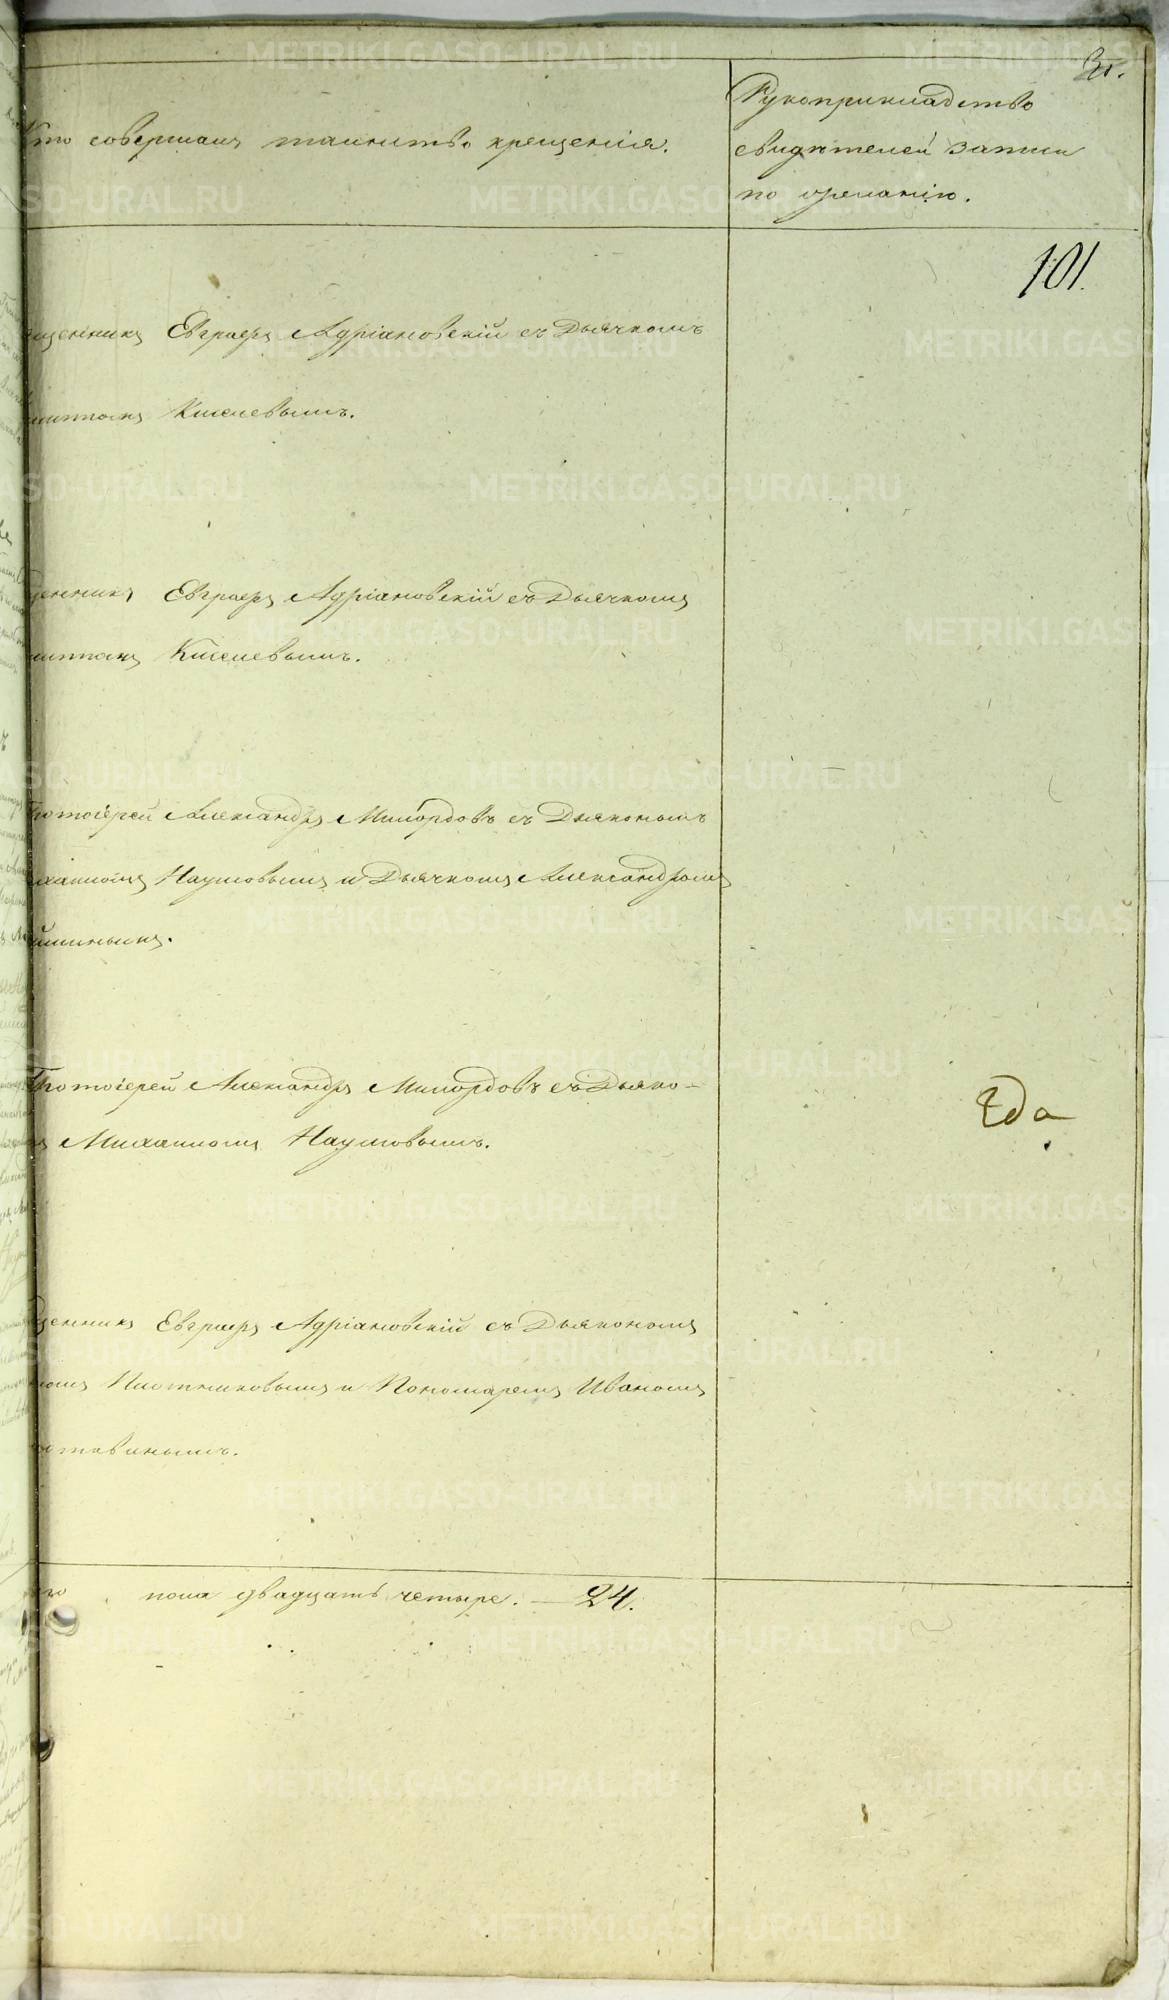 31.
Кто совершалъ таинство крещенія.
Рукоприкладство
свидѣтелей записи
по желанію.
101.
щенникъ Евграфъ Адріановскій съ Дьячкомъ
Киселевымъ.
щенникъ Евграфъ Адріановскій съ Дьячкомъ
Киселевымъ.
ротоіерей Александръ Милордовъ съ Дьякономъ
ихаиломъ Наумовымъ и Дьячкомъ Александромъ
ротоіерей Александръ Милордовъ съ Дьяко-
Михаиломъ Наумовымъ.
щенникъ Евграфъ Адріановскій съ Дьякономъ
Плотниковымъ и Пономаремъ Иваномъ
пола двадцать четыре. — 24.
METRIKI.GASO-URAL.RU